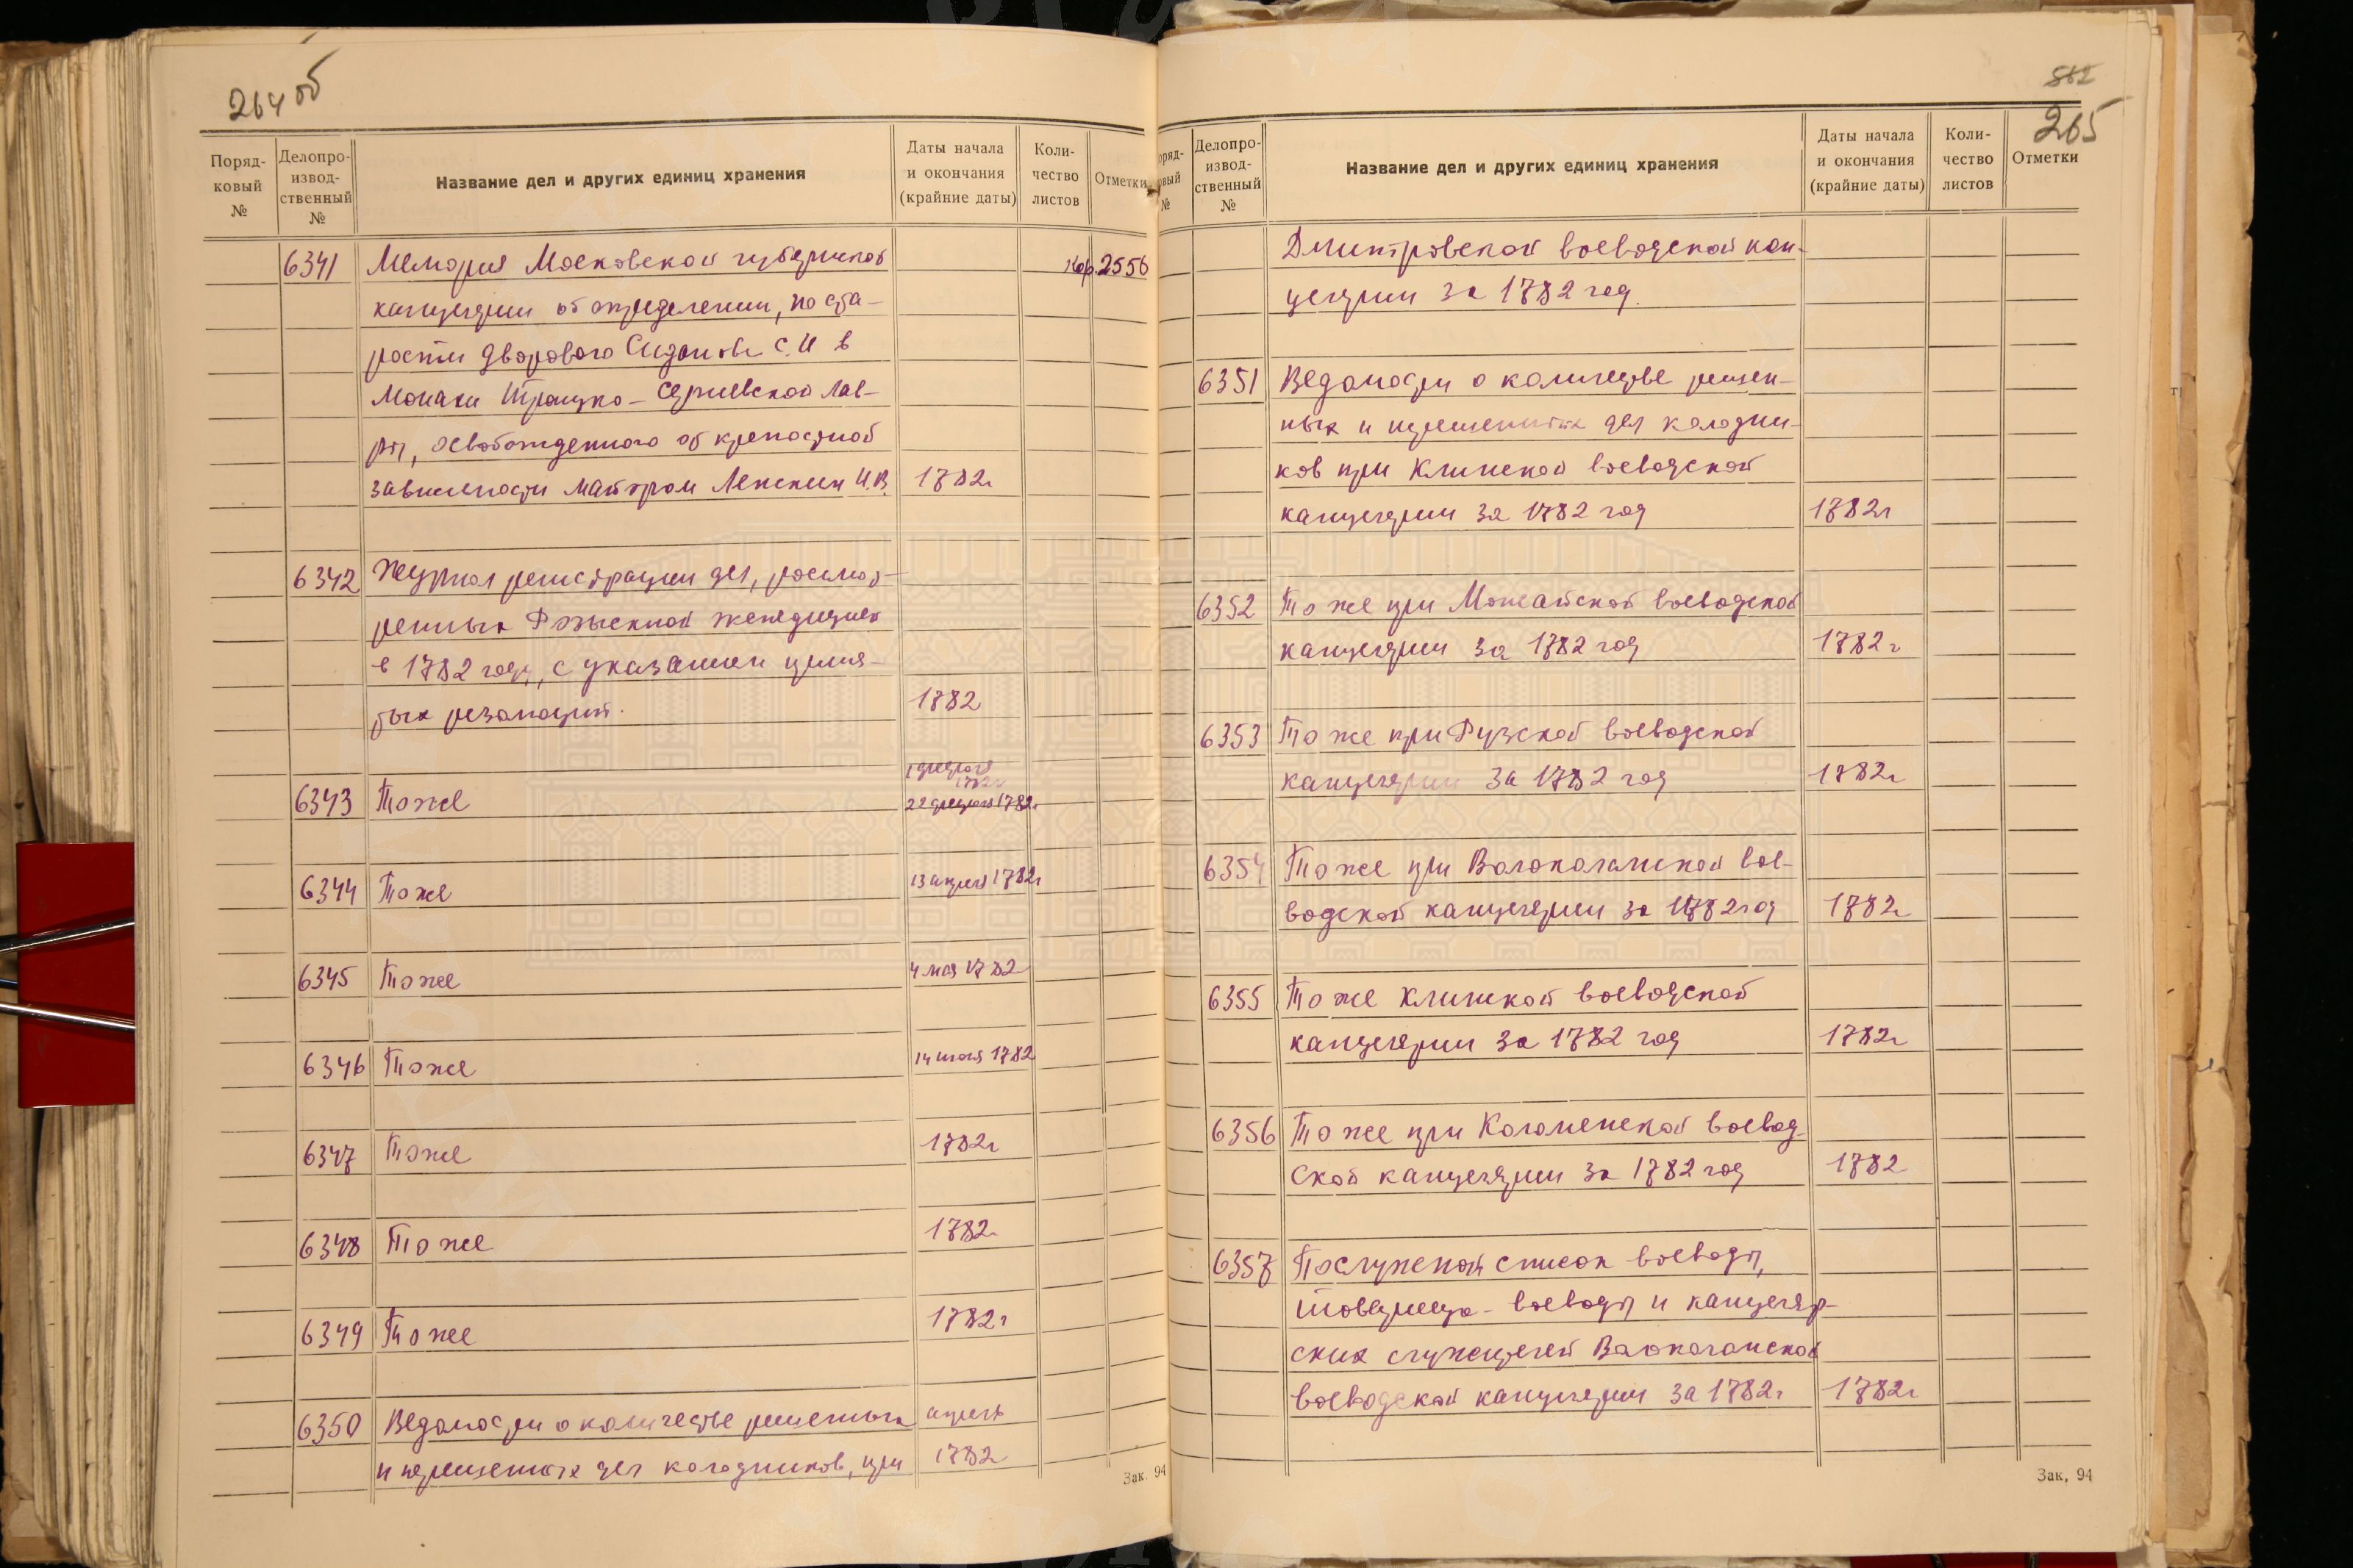 264 об
Поряд-
ковый
№
Делопро-
извод-
ственный
№
Название дел и других единиц хранения
Даты начала
и окончания
(крайние даты)
Коли-
чество
листов
Отметки
6341 Мемория Московской губернской кор. 2556
канцелярии об определении, по ста-
рости дворового С.И в
монахи Троицко-Сергиевской лав-
ры, освобожденного от крепостной
зависимости майором И.В. 1782г
6342 Журнал регистрации дел, рассмот-
ренных Розыскной экспедицией
в 1782 году, с указанием приня-
тых резолюций. 1782
1 февраля
1782г
6343 Тоже 22 февраля 1782г
6344 Тоже 13 апреля 1782г
6345 Тоже 4 мая 1782
6346 Тоже 14 июля 1782
6347 Тоже 1782г
6348 Тоже 1782г
6349 Тоже 1782г
6350 Ведомости о количестве решенных апрель
и нерешенных дел колодников, при 1782
Зак. 94
562
265
оряд-
овый
№
Делопро-
извод-
ственный
№
Название дел и других единиц хранения
Даты начала
и окончания
(крайние даты)
Коли-
чество
листов
Отметки
Дмитровской воеводской кан-
целярии за 1782 год.
6351 Ведомости о количестве решен-
ных и нерешенных дел колодни-
ков при Клинской воеводской
канцелярии за 1782 год 1782г
6352 То же при Можайской воеводской
канцелярии за 1782 год 1782 г
6353 То же при Рузской воеводской
канцелярии за 1782 год 1782г
6354 Тоже при Волоколамской вое-
водской канцелярии за 1782 год 1782г
6355 То же Клинской воеводской
канцелярии за 1782 год 1782г
6356 То же при Коломенской воевод-
ской канцелярии за 1782 год 1782
6357 Послужной список воеводы,
товарища-воеводы и канцеляр-
ских служителей Волоколамской
воеводской канцелярии за 1782г 1782г
Зак. 94